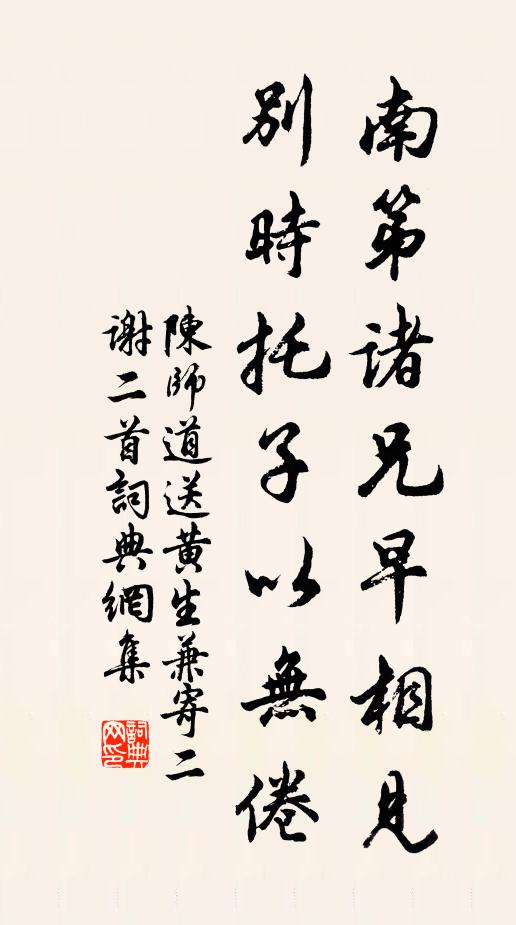 南第諸兄早相見
別時托子以無倦
陳師道送黄生兼寄二
謝二首詞典網集
詞典
网印